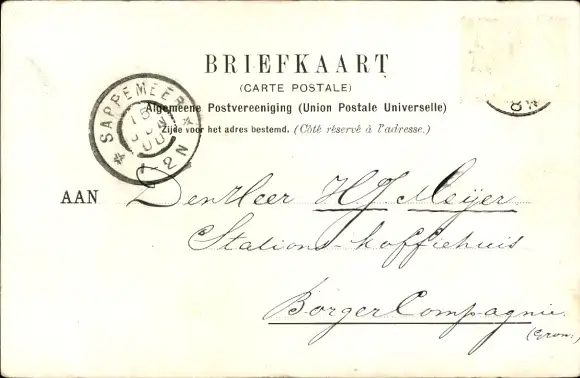 BRIEFKAART
(CARTE POSTALE)
Algemeene Postvereeniging (Union Postale Universelle)
Zijde voor het adres bestemd. (Côté réservé à l'adresse.)
SAPPEMEER
1-2N
8N
AAN Den Heer H.J. Meijer
Stations-koffiehuis
Borger Compagnie
(Gron.)